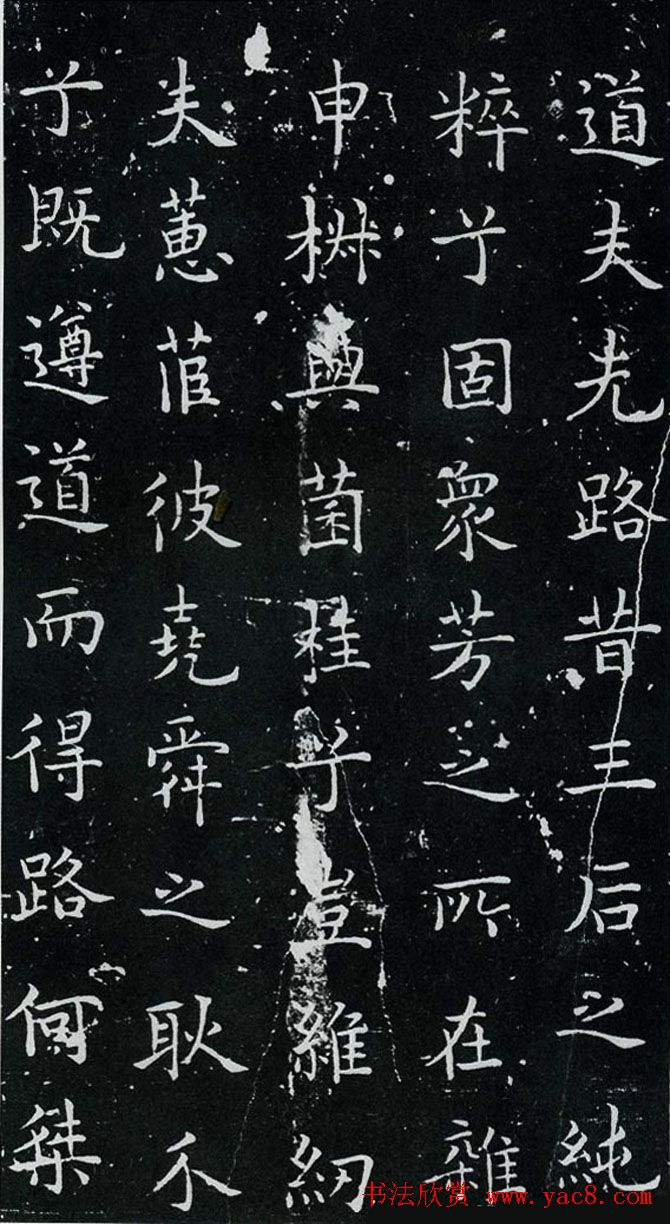 道夫先路昔三后之純
粹兮固衆芳之所在雜
申椒與菌桂兮豈維紉
夫蕙茝彼堯舜之耿介
兮既遵道而得路何桀
书法欣赏 www.yac8.com